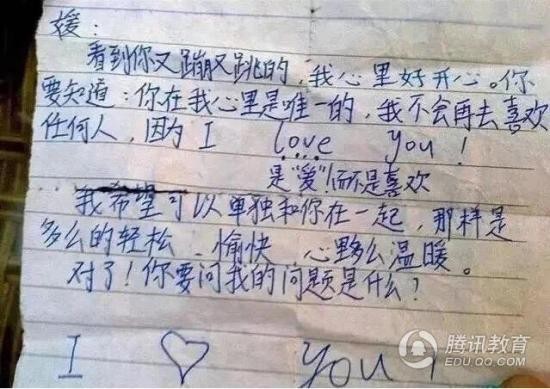 媛：
看到你又蹦又跳的，我心里好开心。你
要知道：你在我心里是唯一的，我不会再去喜欢
任何人，因为 I love you！
是“爱”！而不是喜欢
我希望可以单独和你在一起，那样是
多么的轻松、愉快、心里多么温暖。
对了！你要问我的问题是什么？
I ♡ you！
腾讯教育
EDU.QQ.COM